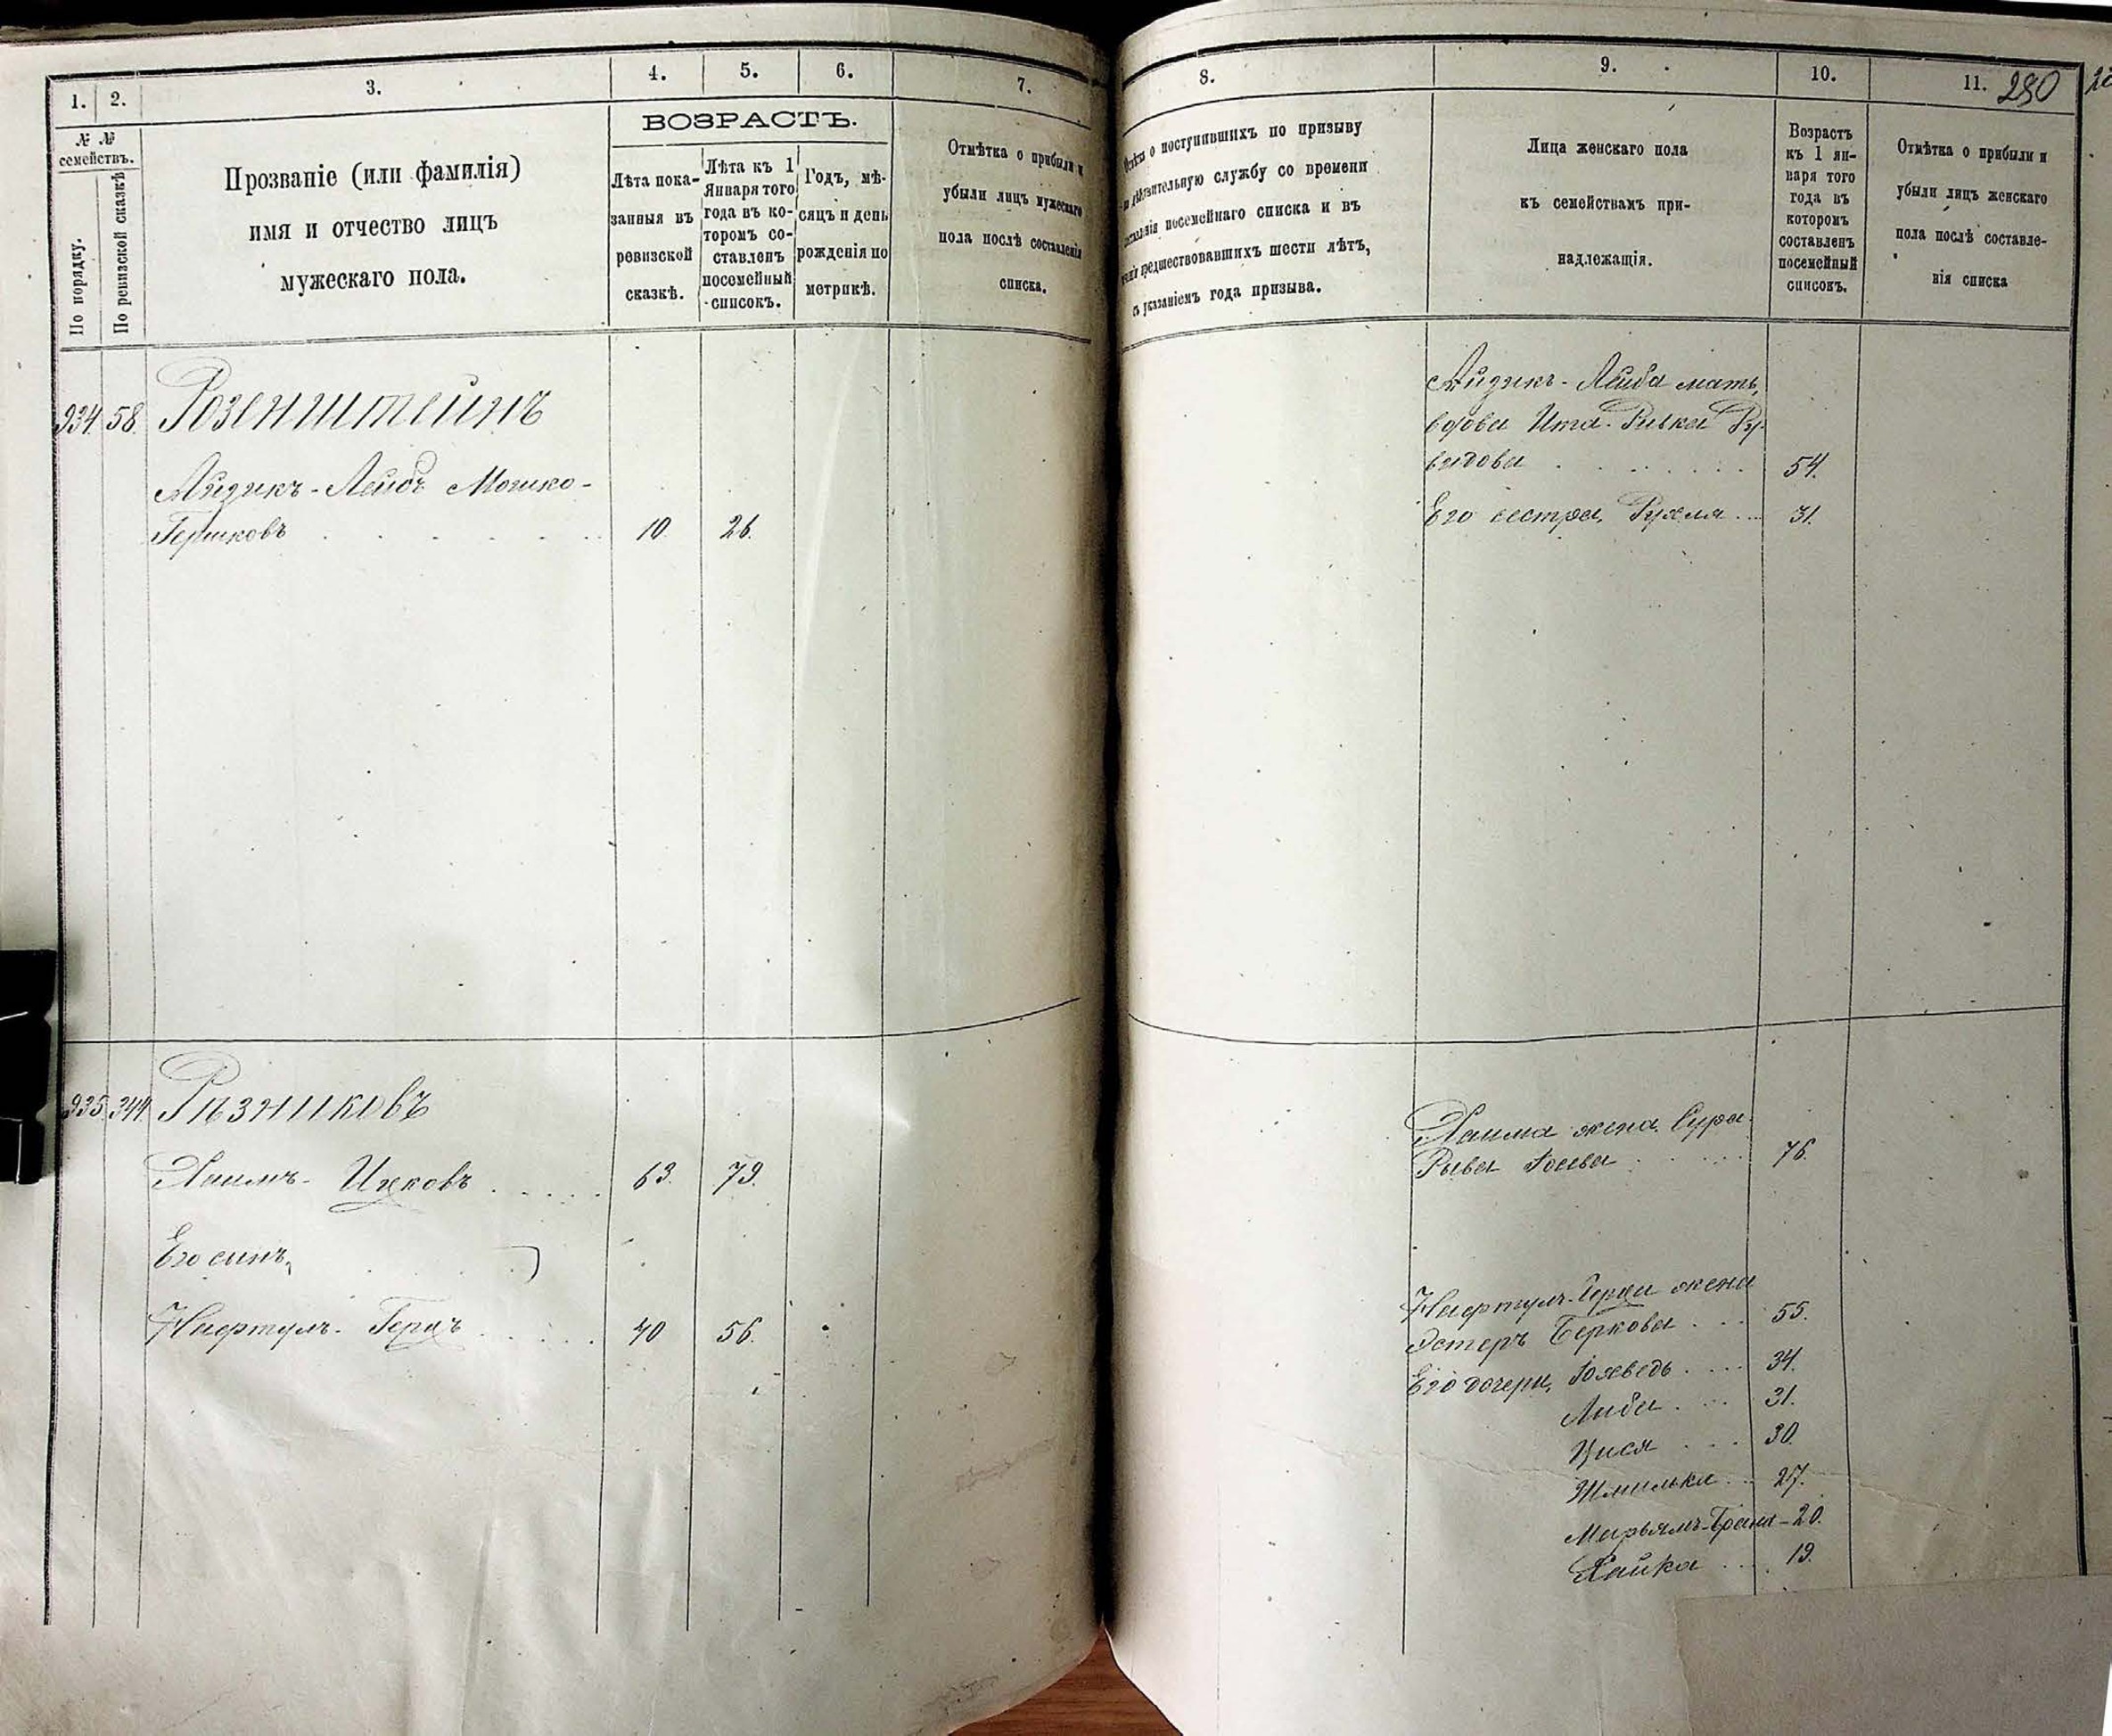 1. 2. 3. 4. 5. 6. 7.
ВОЗРАСТЪ.
№ №
семействъ.
По порядку.
По ревизской сказкѣ
Прозваніе (или фамилія)
имя и отчество лицъ
мужескаго пола.
Лѣта пока-
занныя въ
ревизской
сказкѣ.
Лѣта къ 1
Января того
года въ ко-
торомъ со-
ставленъ
посемейный
списокъ.
Годъ, мѣ-
сяцъ и день
рожденія по
метрикѣ.
Отмѣтка о прибыли и
убыли лицъ мужескаго
пола послѣ составленія
списка.
934. 58. Розенштейнъ
Айзикъ-Лейбъ Мошко-
Гершковъ 10 26.
935. 344. Рѣзниковъ
Хаимъ- Ицковъ 63. 79.
Его сынъ,
Нафтулъ- Герцъ 40 56.
8. 9. 10. 11. 280
о поступившихъ по призыву
дѣйствительную службу со времени
посемейнаго списка и въ
предшествовавшихъ шести лѣтъ,
съ указаніемъ года призыва.
Лица женскаго пола
къ семействамъ при-
надлежащія.
Возрастъ
къ 1 ян-
варя того
года въ
которомъ
составленъ
посемейный
списокъ.
Отмѣтка о прибыли и
убыли лицъ женскаго
пола послѣ составле-
нія списка
Айзикъ-Лейба мать,
вдова Ита-Ривка
видова 54.
Его сестра, Рухля 31.
Хаима жена Сура-
Рыва 76.
Нафтулъ-Герца жена
Эстеръ Беркова 55.
Его дочери, Іохеведъ 34.
Либа 31.
Цися 30.
Шмилька 27.
Марьямъ-Брана - 20.
Хайка 19.